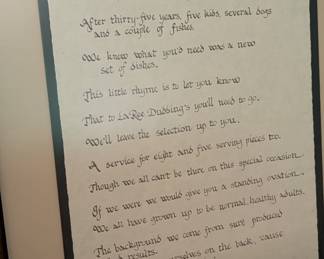 After thirty-five years, five kids, several dogs
and a couple of fishes
We knew what you'd need was a new
set of dishes.
This little rhyme is to let you know
That to LaRee Dubbing's you'll need to go.
We'll leave the selection up to you.
A service for eight and five serving pieces too.
Though we all can't be there on this special occasion
If we were we would give you a standing ovation.
We all have grown up to be normal, healthy adults.
The background we come from sure produced
results.
ourselves on the back, 'cause